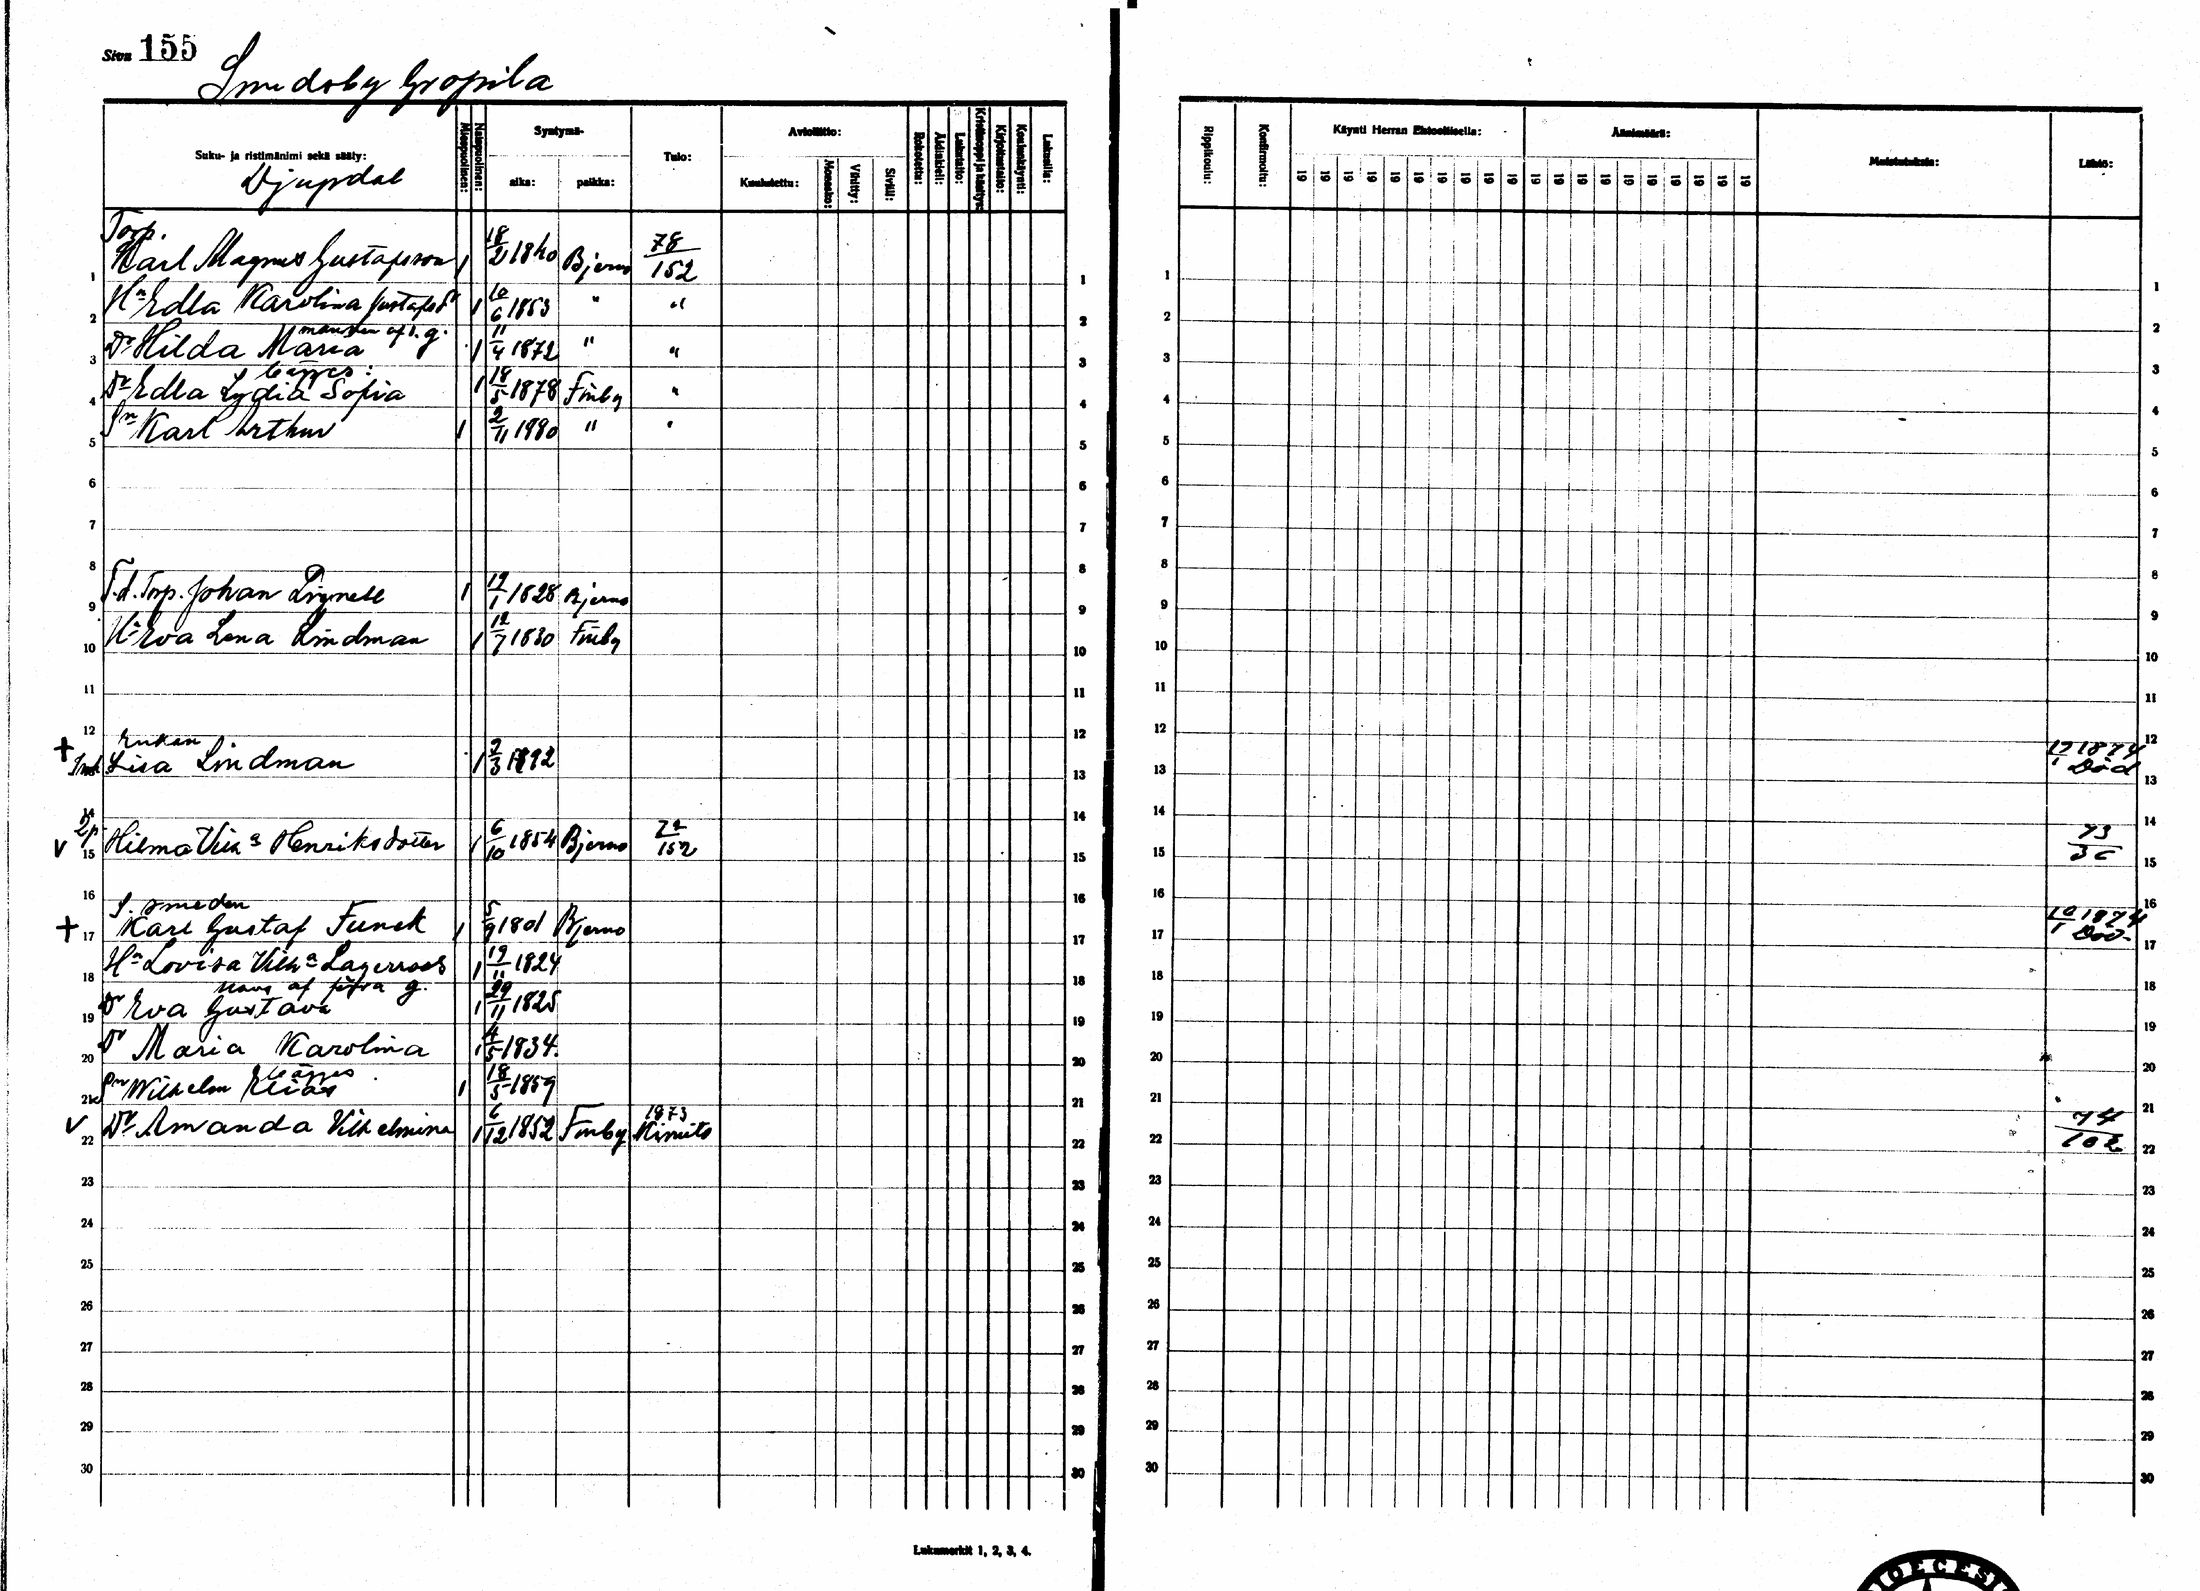 Sivu 155
Smedsby Gropila
Suku- ja ristimänimi sekä sääty: Miespuolinen: Naispuolinen: Syntymä- aika: paikka: Tulo: Avioliitto: Kuulutettu: Morsiusko: Vihitty: Siviili: Rokotettu: Äidinkieli: Lukutaito: Kristinoppi ja käsitys: Kirjoitustaito: Koulunkäynti: Lukusija: Rippikoulu: Konfirmoitu: Käynti Herran Ehtoollisella: Äänimäärä: Muistutuksia: Lähtö:
19 19 19 19 19 19 19 19 19 19 19 19 19 19 19 19 19 19 19 19
Djupdal
Torp.
1 Karl Magnus Gustafsson 1 18/2 1840 Bjerno 78/152 1
2 Hn Edla Karolina Gustafsdr 1 10/6 1853 " " 2
mannen af 1. g.
3 Dr Hilda Maria 1 11/4 1872 " " 3
bägges:
4 Dr Edla Lydia Sofia 1 18/5 1878 Finby " 4
5 Sn Karl Arthur 1 2/11 1980 " " 5
6 6
7 7
8 8
9 F.d. Torp. Johan 1 19/1 1828 Bjerno 9
10 Hn Eva Lena Lindman 1 12/7 1830 Finby 10
11 11
12 12
Enkan
+ Inh 13 Lisa Lindman 1 2/3 1792 17/1 1874 Död 13
14 14
v 15 Hilma Vilh:a Henriksdotter 1 6/10 1854 Bjerno 72/152 73/36 15
16 16
S. smeden
+ 17 Karl Gustaf Funck 1 5/9 1801 Bjerno 10/1 1874 Död 17
18 Hn Lovisa Vilh:a Lagerroos 1 19/11 1824 18
Hans af förra g.
19 Dr Eva Gustava 1 29/11 1825 19
20 Dr Maria Karolina 1 4/5 1834. 20
bägges
21 Sn Wilhelm Elias 1 18/5 1859 21
v 22 Dr Amanda Vilhelmina 1 6/12 1852 Finby 1873 Kimito 74/102 22
23 23
24 24
25 25
26 26
27 27
28 28
29 29
30 30
Lukumerkit 1, 2, 3, 4.